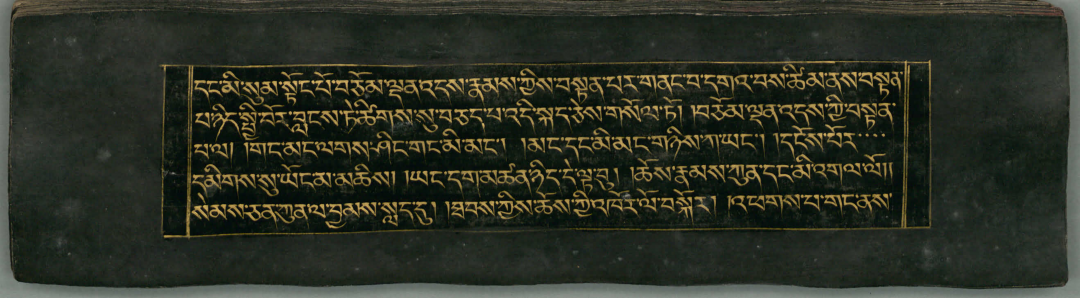 དང་མི་སུམ་སྟོང་པོ་བཅོམ་ལྡན་འདས་རྣམས་ཀྱིས་བསྟན་པར་གནང་བ་དགའ་བས་ཚིམ་ནས་བསྟན་
པ་ཉིད་སྤྱི་བོར་བླངས་ཏེ་ཚིགས་སུ་བཅད་པ་འདི་སྐད་ཅེས་གསོལ་ཏོ། །བཅོམ་ལྡན་འདས་ཀྱི་བསྟན་
པ་ལ། །གང་མང་ལགས་ཤིང་གང་མི་མང་། །མང་དང་མི་མང་གཉིས་ཀ་ཡང་། །དངོས་པོར་
དམིགས་སུ་ཡོང་མ་མཆིས། །ཡང་དག་མཚན་ཉིད་དེ་ལྟ་བུ། །ཆོས་རྣམས་ཀུན་དང་མི་འགལ་ལོ།།
སེམས་ཅན་ཀུན་ལ་བྱམས་སླད་དུ། །ཐབས་ཀྱིས་ཆོས་ཀྱི་འཁོར་ལོ་བསྐོར། །འཕགས་པ་གང་ནས་